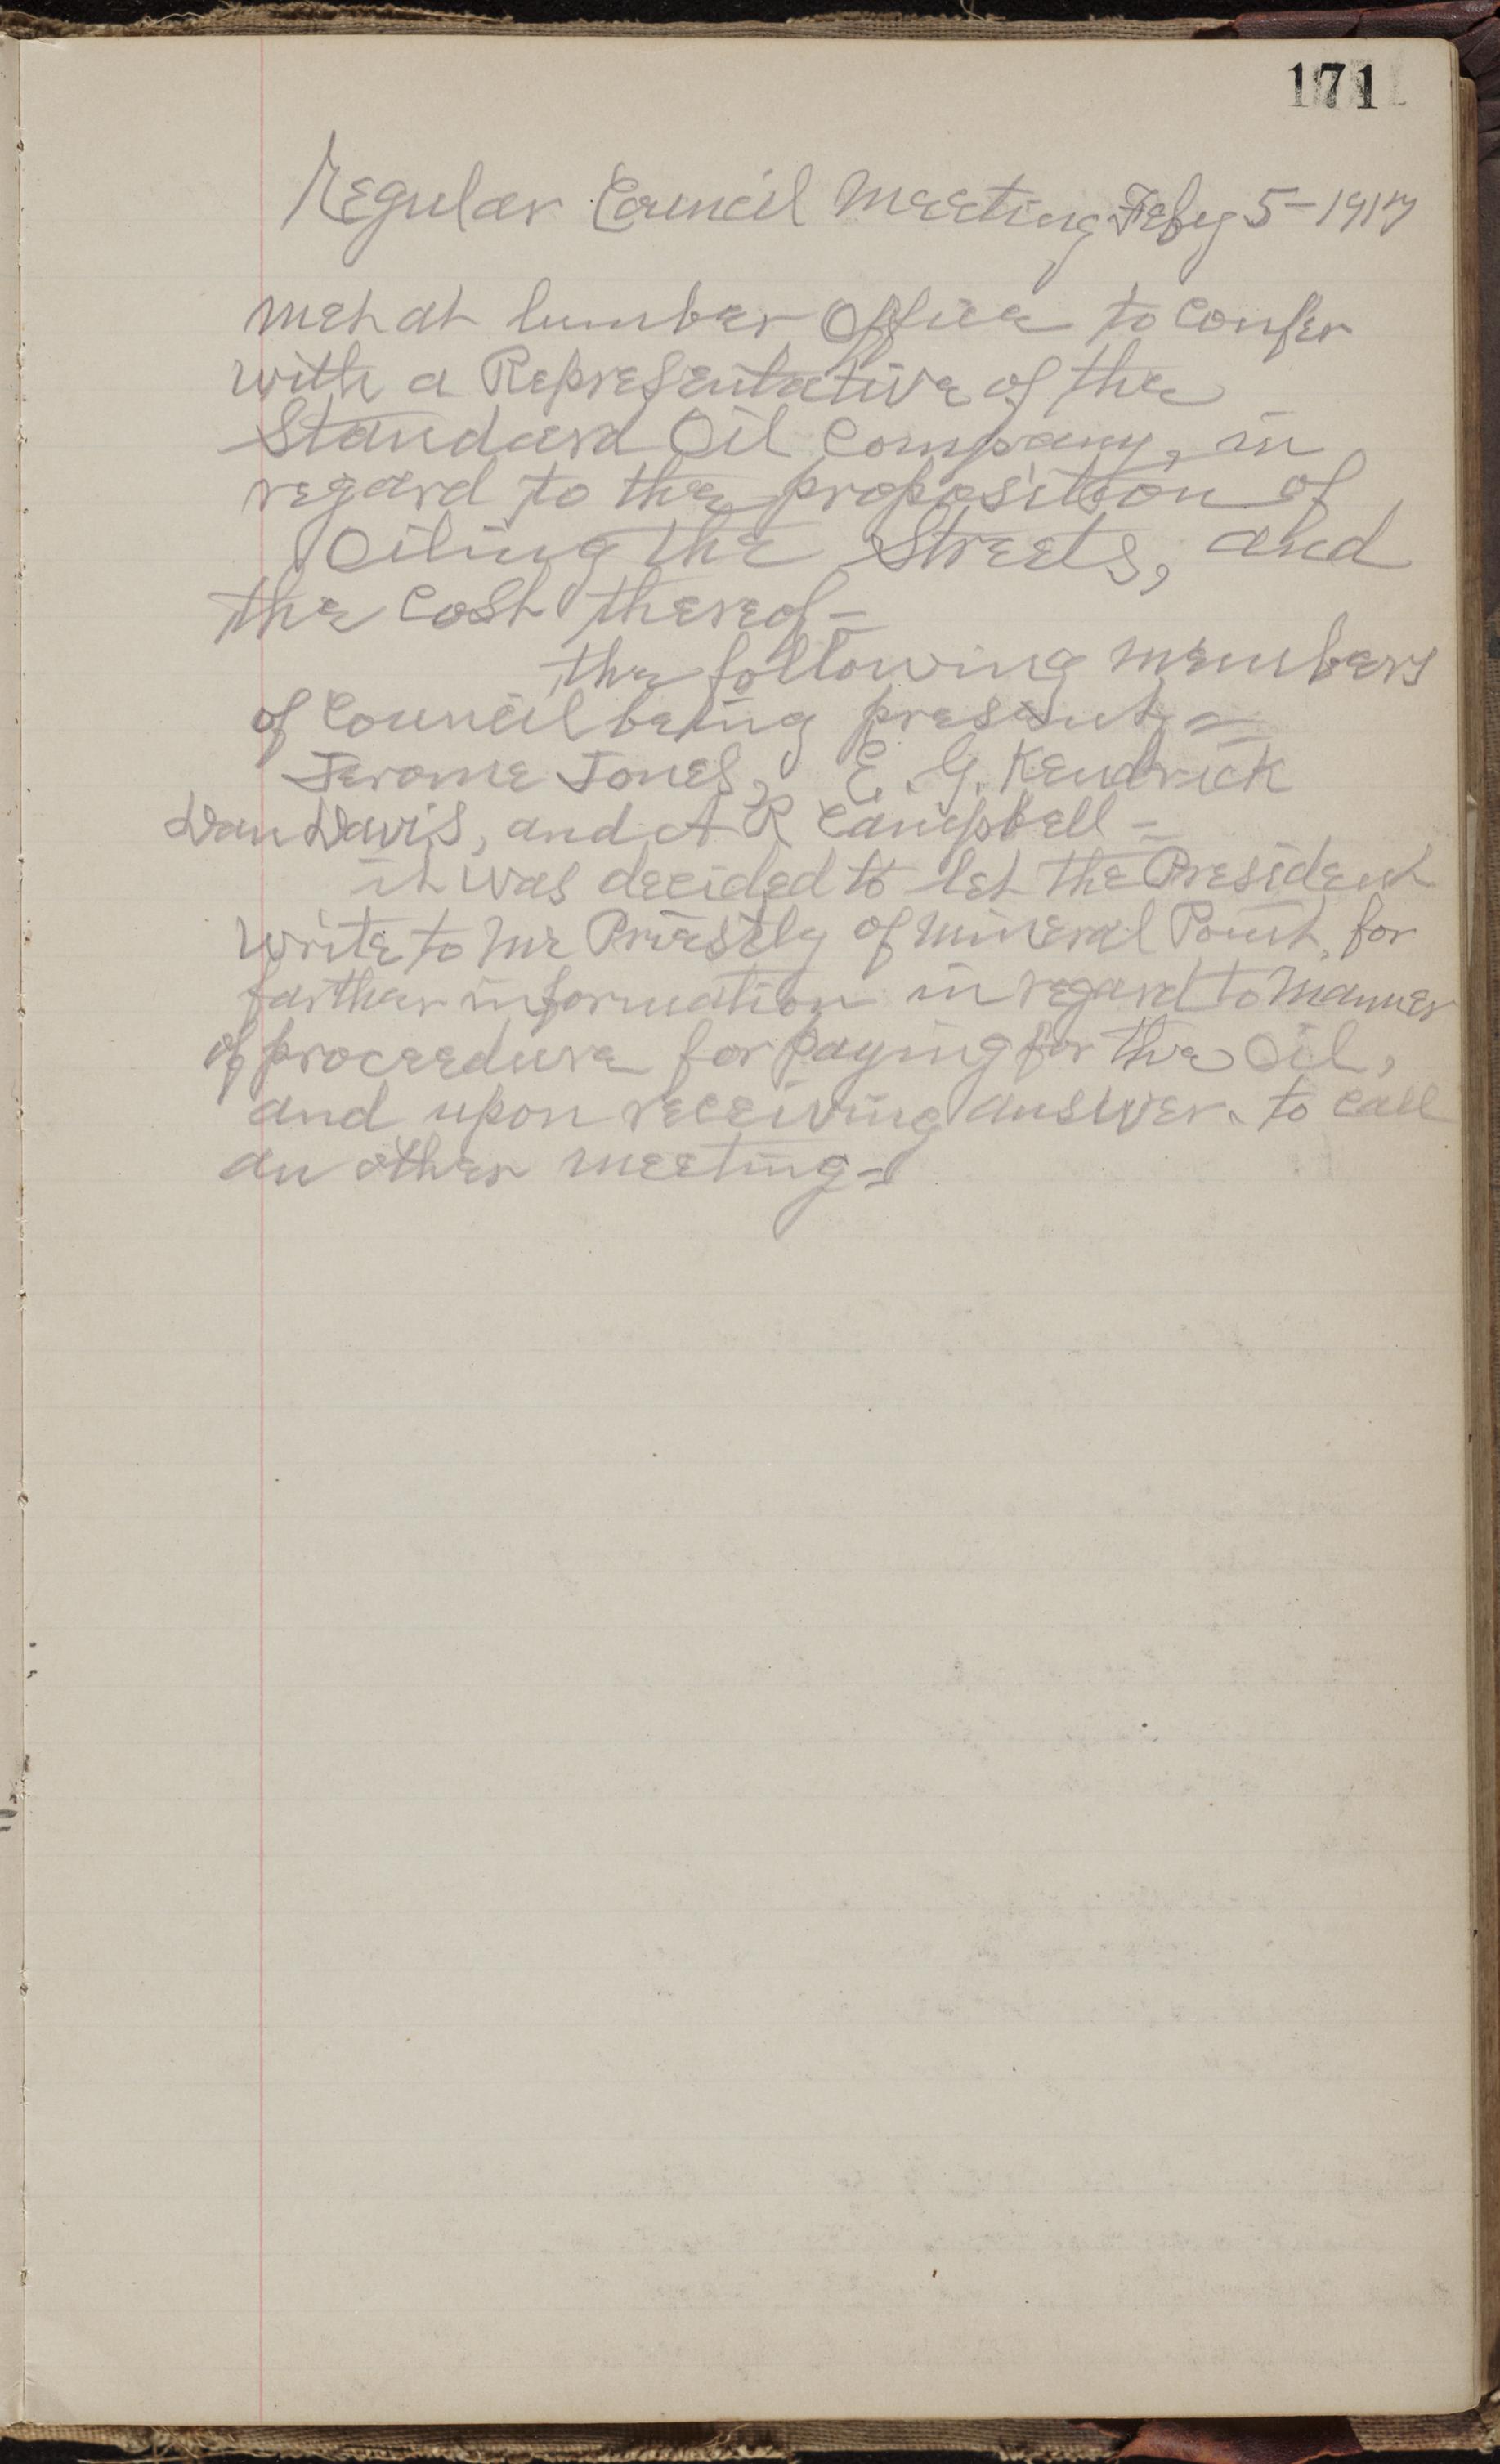 171
Regular Council Meeting Feby 5-1917
met at lumber Office to Confer
with a Representative of the
Standard Oil Company, in
regard to the proposition of
Oiling the Streets, and
the Cost thereof-
the following members
of Council being present-
Jerome Jones, E. G. Kendrick
Dan Davis, and A R Campbell-
it was decided to let the President
write to Mr Priestly of Mineral Point, for
farther information in regard to Manner
of proceedure for paying for the Oil,
and upon receiving answer to call
an other meeting-